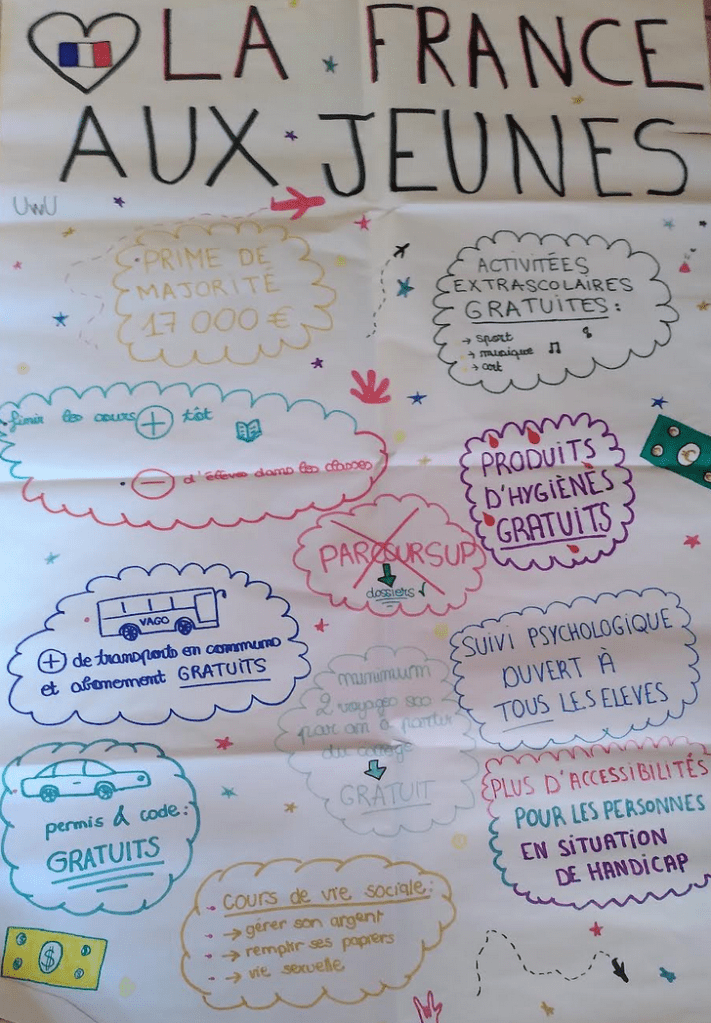 LA FRANCE
AUX JEUNES
UwU
PRIME DE
MAJORITÉ
17 000 €
ACTIVITÉES
EXTRASCOLAIRES
GRATUITES :
→ sport
→ musique
→ art
finir les cours + tôt
- d'élèves dans les classes
PRODUITS
D'HYGIÈNES
GRATUITS
€
PARCOURSUP
dossiers
VAGO
+ de transports en communs
et abonement GRATUITS
SUIVI PSYCHOLOGIQUE
OUVERT À
TOUS LES ELEVES
minimum
2 voyages sco
par an à partir
du collège
GRATUIT
permis & code :
GRATUITS
PLUS D'ACCESSIBILITÉS
POUR LES PERSONNES
EN SITUATION
DE HANDICAP
COURS DE VIE SOCIALE :
→ gérer son argent
→ remplir ses papiers
→ vie sexuelle
$